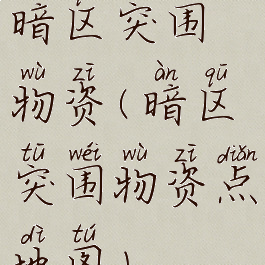 暗区突围
wù zī àn qū
物资(暗区
tū wéi wù zī diǎn
突围物资点
dì tú
地图)